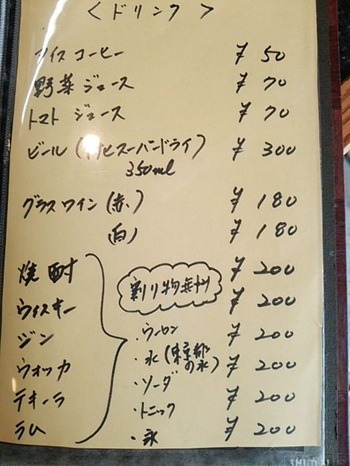 ＜ドリンク＞
アイスコーヒー ¥50
野菜ジュース ¥70
トマトジュース ¥70
ビール(アサヒスーパードライ) ¥300
350ml
グラスワイン(赤) ¥180
白) ¥180
焼酎 ¥200
割り物無料
ウイスキー ¥200
ジン ¥200
・ウーロン
ウォッカ ¥200
・水(東京都の水)
・ソーダ
テキーラ ¥200
・トニック
ラム ¥200
・氷